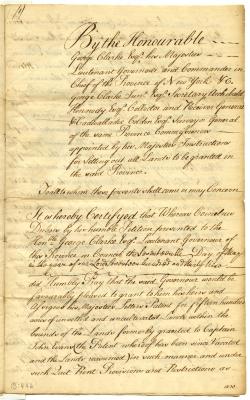 By the Honourable
George Clarke Esqr. his Majesties
Lieutenant Governour and Commander in
Chief of the Province of New York &c.
George Clarke Junr. Esqr. Secretary Archibald
Kennedy Esqr. Collector and Receiver General
& Cadwallader Colden Esqr. Surveyor General
of the same Province Commissioners
appointed by his Majesties Instructions
for Setting out all Lands to be granted in
the said Province.
To all to whom these presents shall come or may Concern
It is hereby Certifyed that Whereas Cornelius
by his humble Petition presented to the
Honble. George Clarke Esqr. Lieutenant Governour of
this Province in Council the Day of May
in the year of our Lord One thousand seven hundred and thirty
did Humbly Pray that the said Governour would be
favourably pleased to grant to him his heirs and
Assigns his Majesties Letters Patent for fifteen hundred
acres of unvested and uncultivated Lands within the
bounds of the Lands formerly granted to Captain
John Evans the Patent whereof has been since Vacated
and the Lands resumed in such manner and under
such Quit Rent Provisions and Restrictions as
are